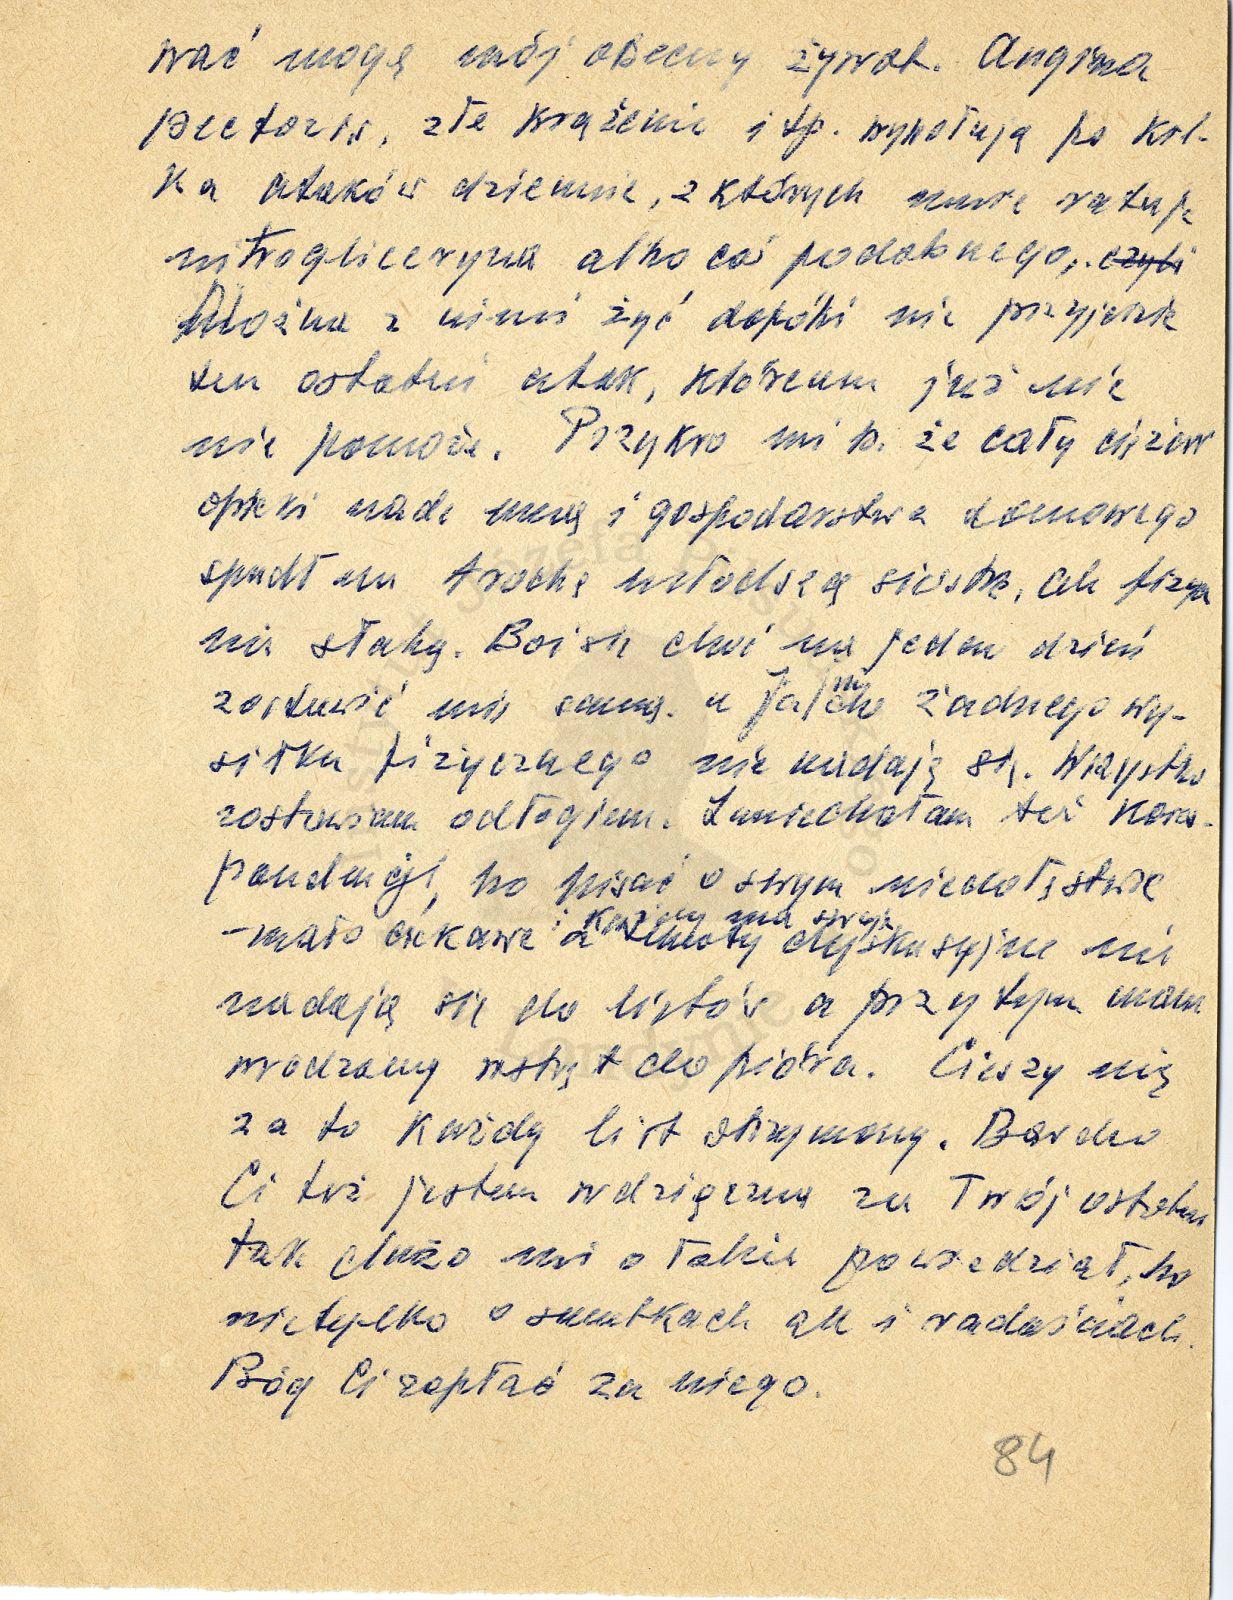 wać mogę mój obecny żywot. Angina
pectoris, złe krążenie i tp. wywołują po kil-
ka ataków dziennie, z których mnie ratuje
nitrogliceryna albo coś podobnego, czyli
Można z nimi żyć dopóki nie przyjdzie
ten ostatni atak, któremu już nic
nie pomoże. Przykro mi b. że cały ciężar
opieki nade mną i gospodarstwa domowego
spadł na trochę młodszą siostrę, ale fizycz
nie słabą. Boi się choć na jeden dzień
zostawić mię samą. a ja do żadnego wy-
siłku fizycznego nie nadaję się. Wszystko
zostawiam odłogiem. Zaniechałam też kores-
pondencji, bo pisać o swym niedołęstwie
i każdy ma swoje
-mało ciekawe a tematy dyskusyjne nie
nadają się do listów a przytym mam
wrodzony wstręt do pióra. Cieszy mię
za to każdy list otrzymany. Bardzo
Ci też jestem wdzięczna za Twój ostatni
tak dużo mi o Tobie powiedział, bo
nietylko o smutkach ale i radościach.
Bóg Ci zapłać za niego.
84
Józefa Piłsudskiego
Londynie